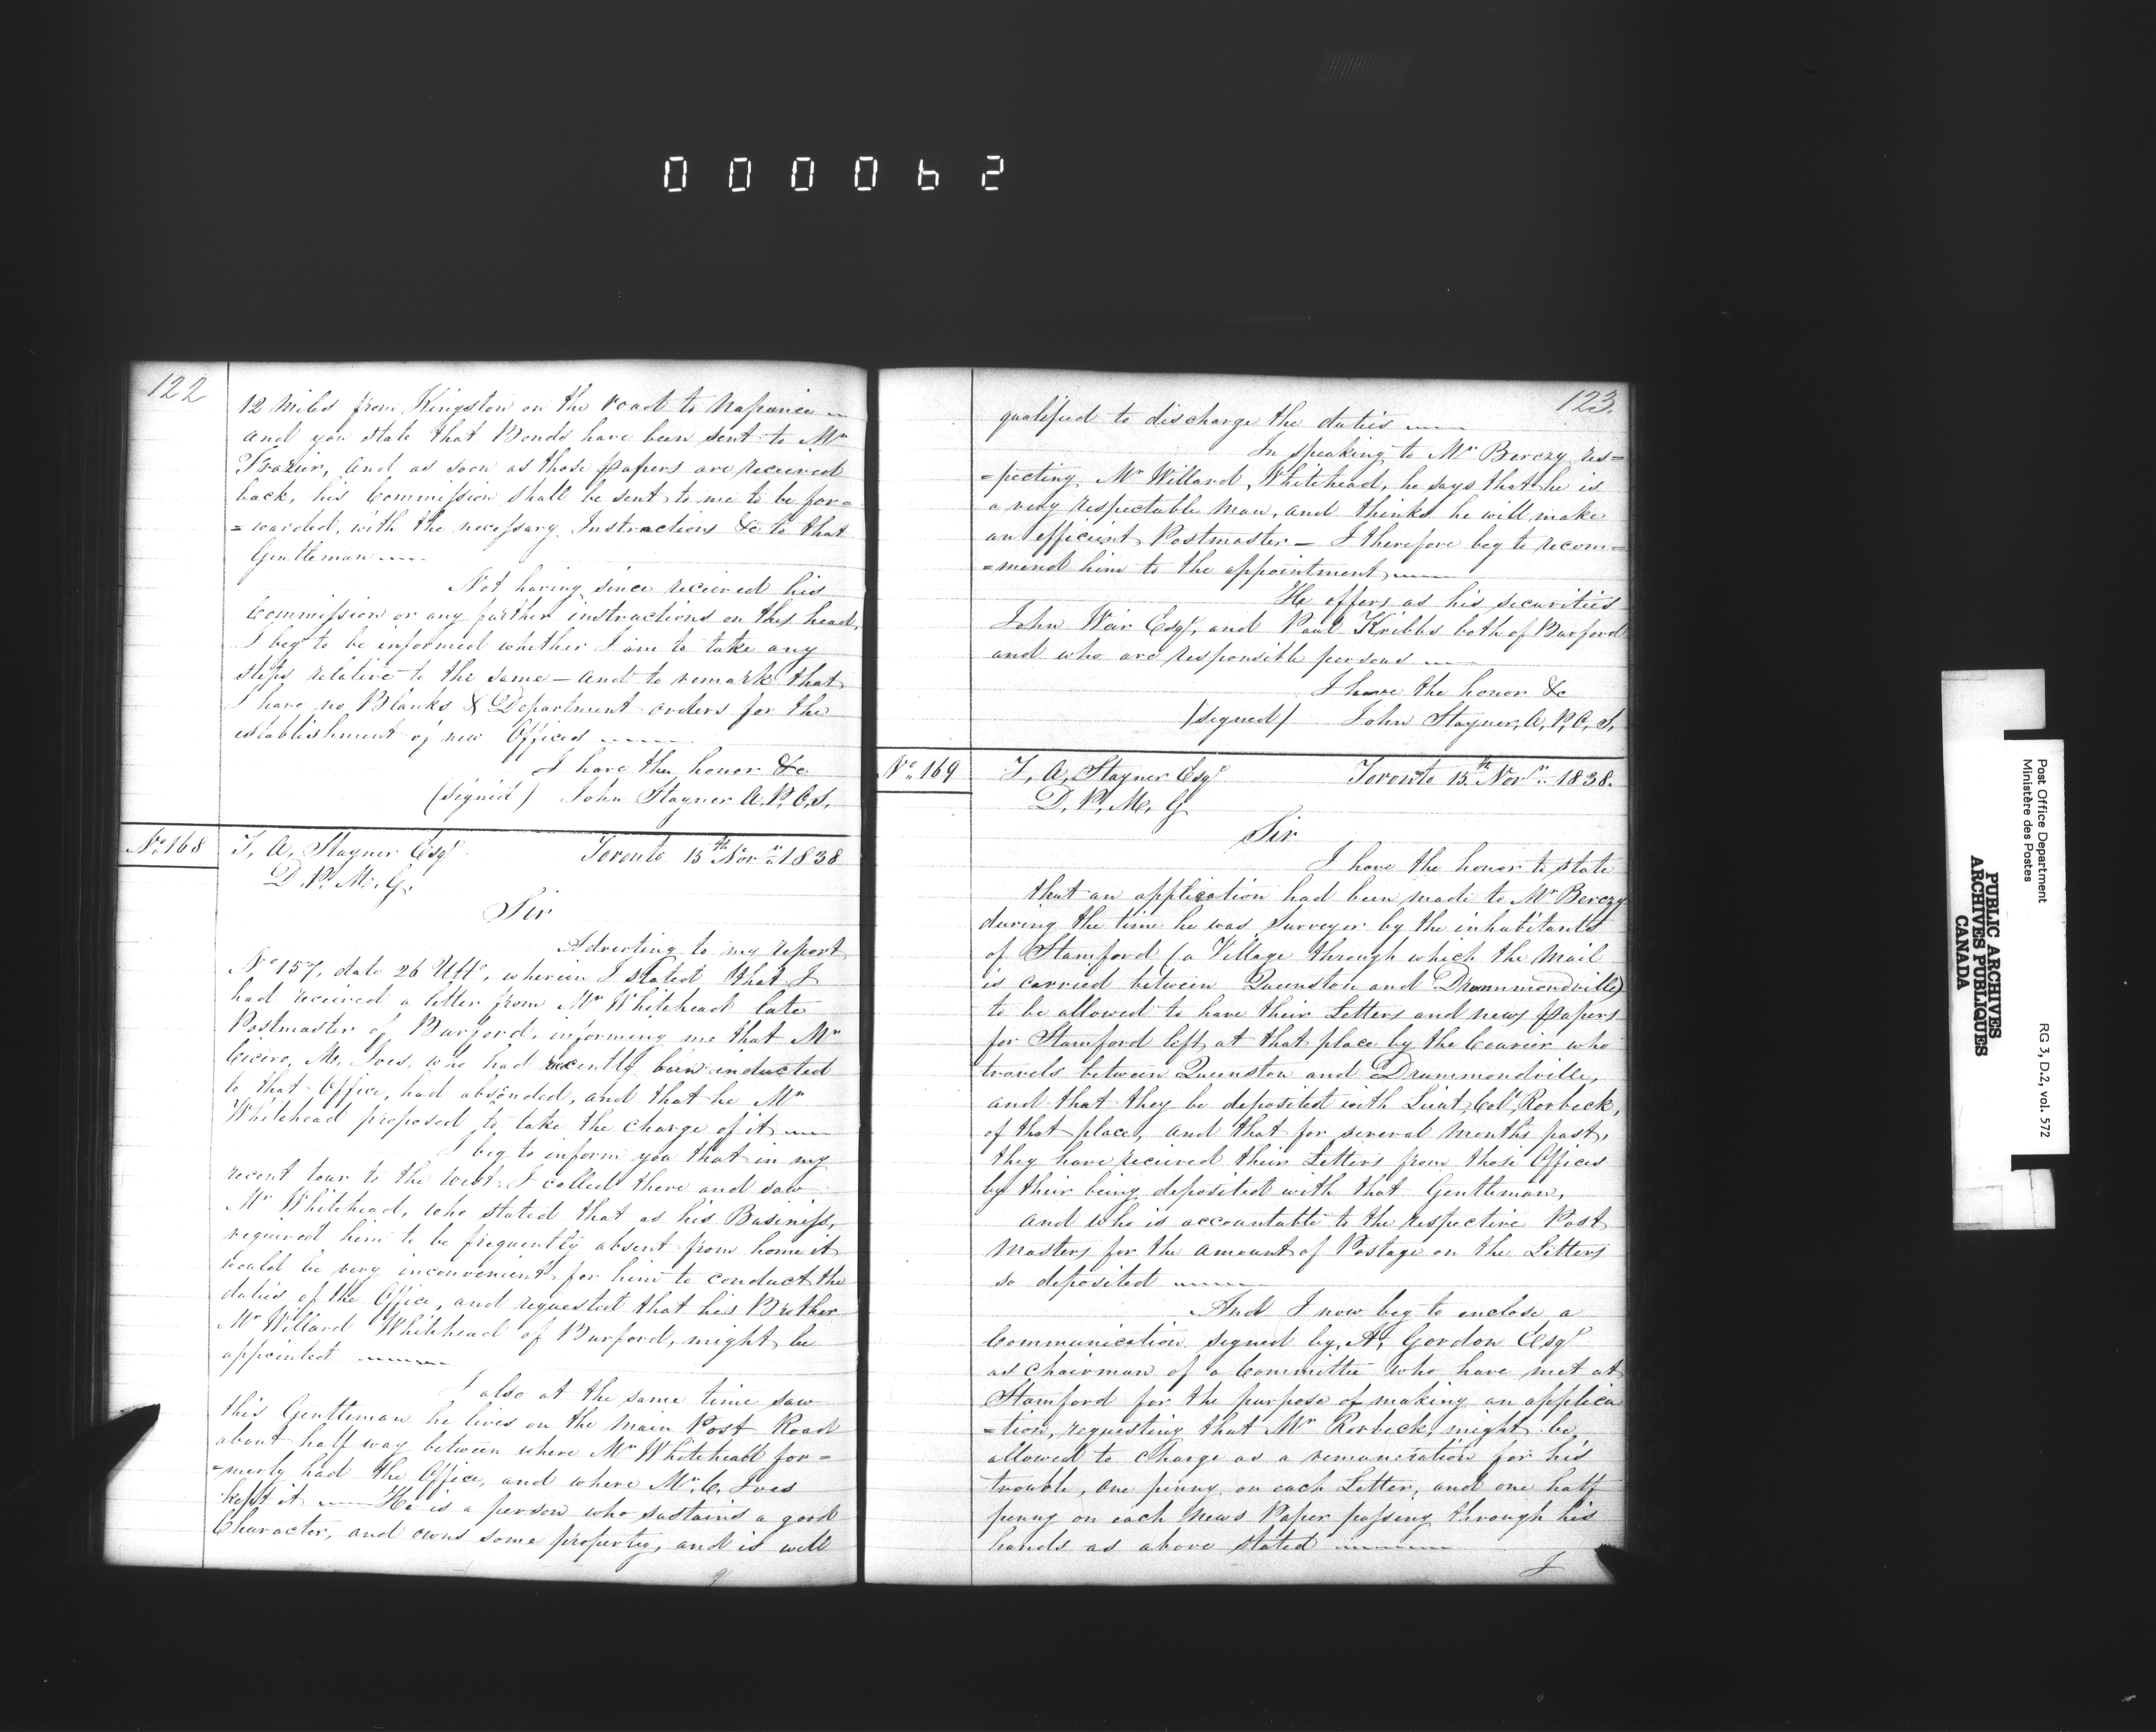 000062
122
12 Miles from Kingston on the road to Napanee
and you state that Bonds have been sent to Mr
Frazier, and as soon as those papers are received
back, his Commission shall be sent to me to be for=
=warded, with the necessary Instructions &c to that
Gentleman
Not having since received his
Commission or any further instructions on this head,
I beg to be informed whether I am to take any
steps relative to the same – and to remark that
I have no Blanks & Department orders for the
establishment of new Offices
I have the honor &c
(signed) John Stayner A. P. O. S.
No 168
T. A. Stayner Esqr
Toronto 15th Novr 1838
D. P. M. G.
Sir
Adverting to my report
No 157, date 26 Ulto, wherein I stated that I
had received a letter from Mr Whitehead late
Postmaster of Burford, informing me that Mr
Cicero, M. Ives, who had recently been inducted
to that Office, had absconded, and that he Mr
Whitehead proposed to take the charge of it
I beg to inform you that in my
recent tour to the West I called there and saw
Mr Whitehead, who stated that as his Business,
required him to be frequently absent from home it
would be very inconvenient for him to conduct the
duties of the Office, and requested that his Brother
Mr Willard Whitehead of Burford, might be
appointed
I also at the same time saw
this Gentleman he lives on the main Post Road
about half way between where Mr Whitehead for=
=merly had the Office, and where Mr. C. Ives
kept it He is a person who sustains a good
Character, and owns some property, and is well
q
123.
qualified to discharge the duties
In speaking to Mr Berczy res=
=pecting Mr Willard, Whitehead, he says that he is
a very respectable man, and thinks he will make
an efficient Postmaster – I therefore beg to recom=
=mend him to the appointment
He offers as his securities
John Weir Esqr, and Paul Kribbs both of Burford
and who are responsible persons
I have the honor &c
(signed) John Stayner, A, P, O, S,
No 169
T, A, Stayner Esqr
Toronto 15th Novr 1838.
D, P, M, G
Sir
I have the honor to state
that an application had been made to Mr Berczy
during the time he was Surveyor by the inhabitants
of Stamford (a Village through which the mail
is carried between Queenston and Drummondville)
to be allowed to have their Letters and news papers
for Stamford left at that place by the Courier who
travels between Queenston and Drummondville,
and that they be deposited with Lieut, Col, Rorbeck,
of that place, and that for several months past,
they have received their Letters from those Offices
by their being deposited with that Gentleman,
and who is accountable to the respective Post
masters for the amount of Postage on the Letters
so deposited
And I now beg to enclose a
Communication signed by, A, Gordon Esqr
as Chairman of a Committee who have met at
Stamford for the purpose of making an applica
=tion, requesting that Mr Rorbeck, might be
allowed to charge as a remuneration for his
trouble, one penny, on each Letter, and one half
penny on each News Paper passing through his
hands as above stated
I
Post Office Department
Ministère des Postes
RG 3, D.2, vol. 572
PUBLIC ARCHIVES
ARCHIVES PUBLIQUES
CANADA